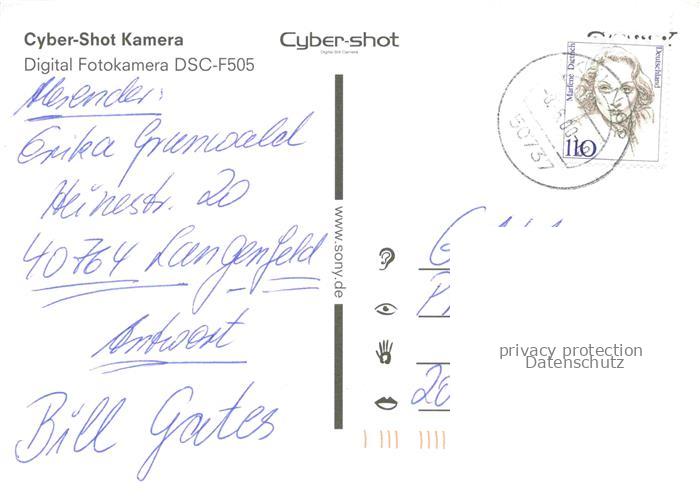 Cyber-Shot Kamera
Digital Fotokamera DSC-F505
Absender:
Erika Grunwald
Heinestr. 20
40764 Langenfeld
Antwort
Bill Gates
Cyber-shot
Digital Still Camera
www.sony.de
Marlene Dietrich
Deutschland
110
50737
20
privacy protection
Datenschutz